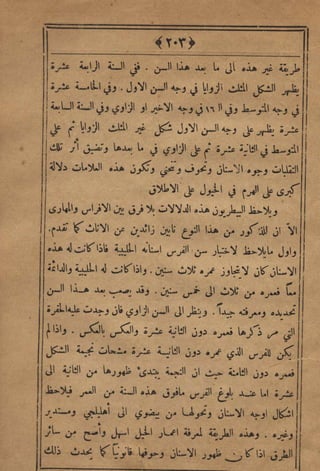 ﴿٢٠٣﴾
طريقة غير هذه الى ما بعد هذا السن . ففي السنة الرابعة عشرة
يظهر الشكل المثلث الزوايا في وجه السن الاول . وفي الخامسة عشرة
في وجه المتوسط وفي الـ ١٦ في وجه الاخير او الزاوي وفي السنة السابعة
عشرة يظهر على وجه السن الاول شكل غير المثلث الزوايا ثم على
المتوسط في الثانية عشرة ثم على الزاوي في ما بعدها وتضيق أثر تلك
التقلبات وجوه الاسنان وتحوف وتنحني وتكون هذه العلامات دلالة
كبرى على الهرم في الخيول على الاطلاق
ويلاحظ البيطريون هذه الدلالات بلا فرق بين الافراس والمهارى
الاّ ان للذكور من هذا النوع نابين زائدين عن الاناث كما تقدم.
واول ما يلاحظ لاختبار سن الفرس اسنانه الحليبية فاذا كانت له هذه
الاسنان كان لا يتجاوز عمره ثلاث سنين . واذا كانت له الحليبية والدائمة
معاً فعمره من ثلاث الى خمس سنين . وقد يصعب بعد هذا السن
تحديده ومعرفته جيداً . وينظر الى السن الزاوي فان وجدت عليه الحفرة
التي مر ذكرها فعمره دون الثانية عشرة والعكس بالعكس . واذا لم
يكن للفرس الذي عمره دون الثانية عشرة مشحات نجيمة الشكل
فعمره دون الثامنة حيث ان النجمة يبتدئ ظهورها من الثانية الى
عشرة اما عند بلوغ الفرس مافوق هذه السنة من العمر فيلاحظ
اشكال اوجه الاسنان وتحولها من بيضوي الى أهليلجي ومستدير
وغيره . وهذه الطريقة لمعرفة اعمار الخيل اسهل وأصح من سائر
الطرق اذا كان ظهور الاسنان وحوفها قانونياً كما يحدث ذلك